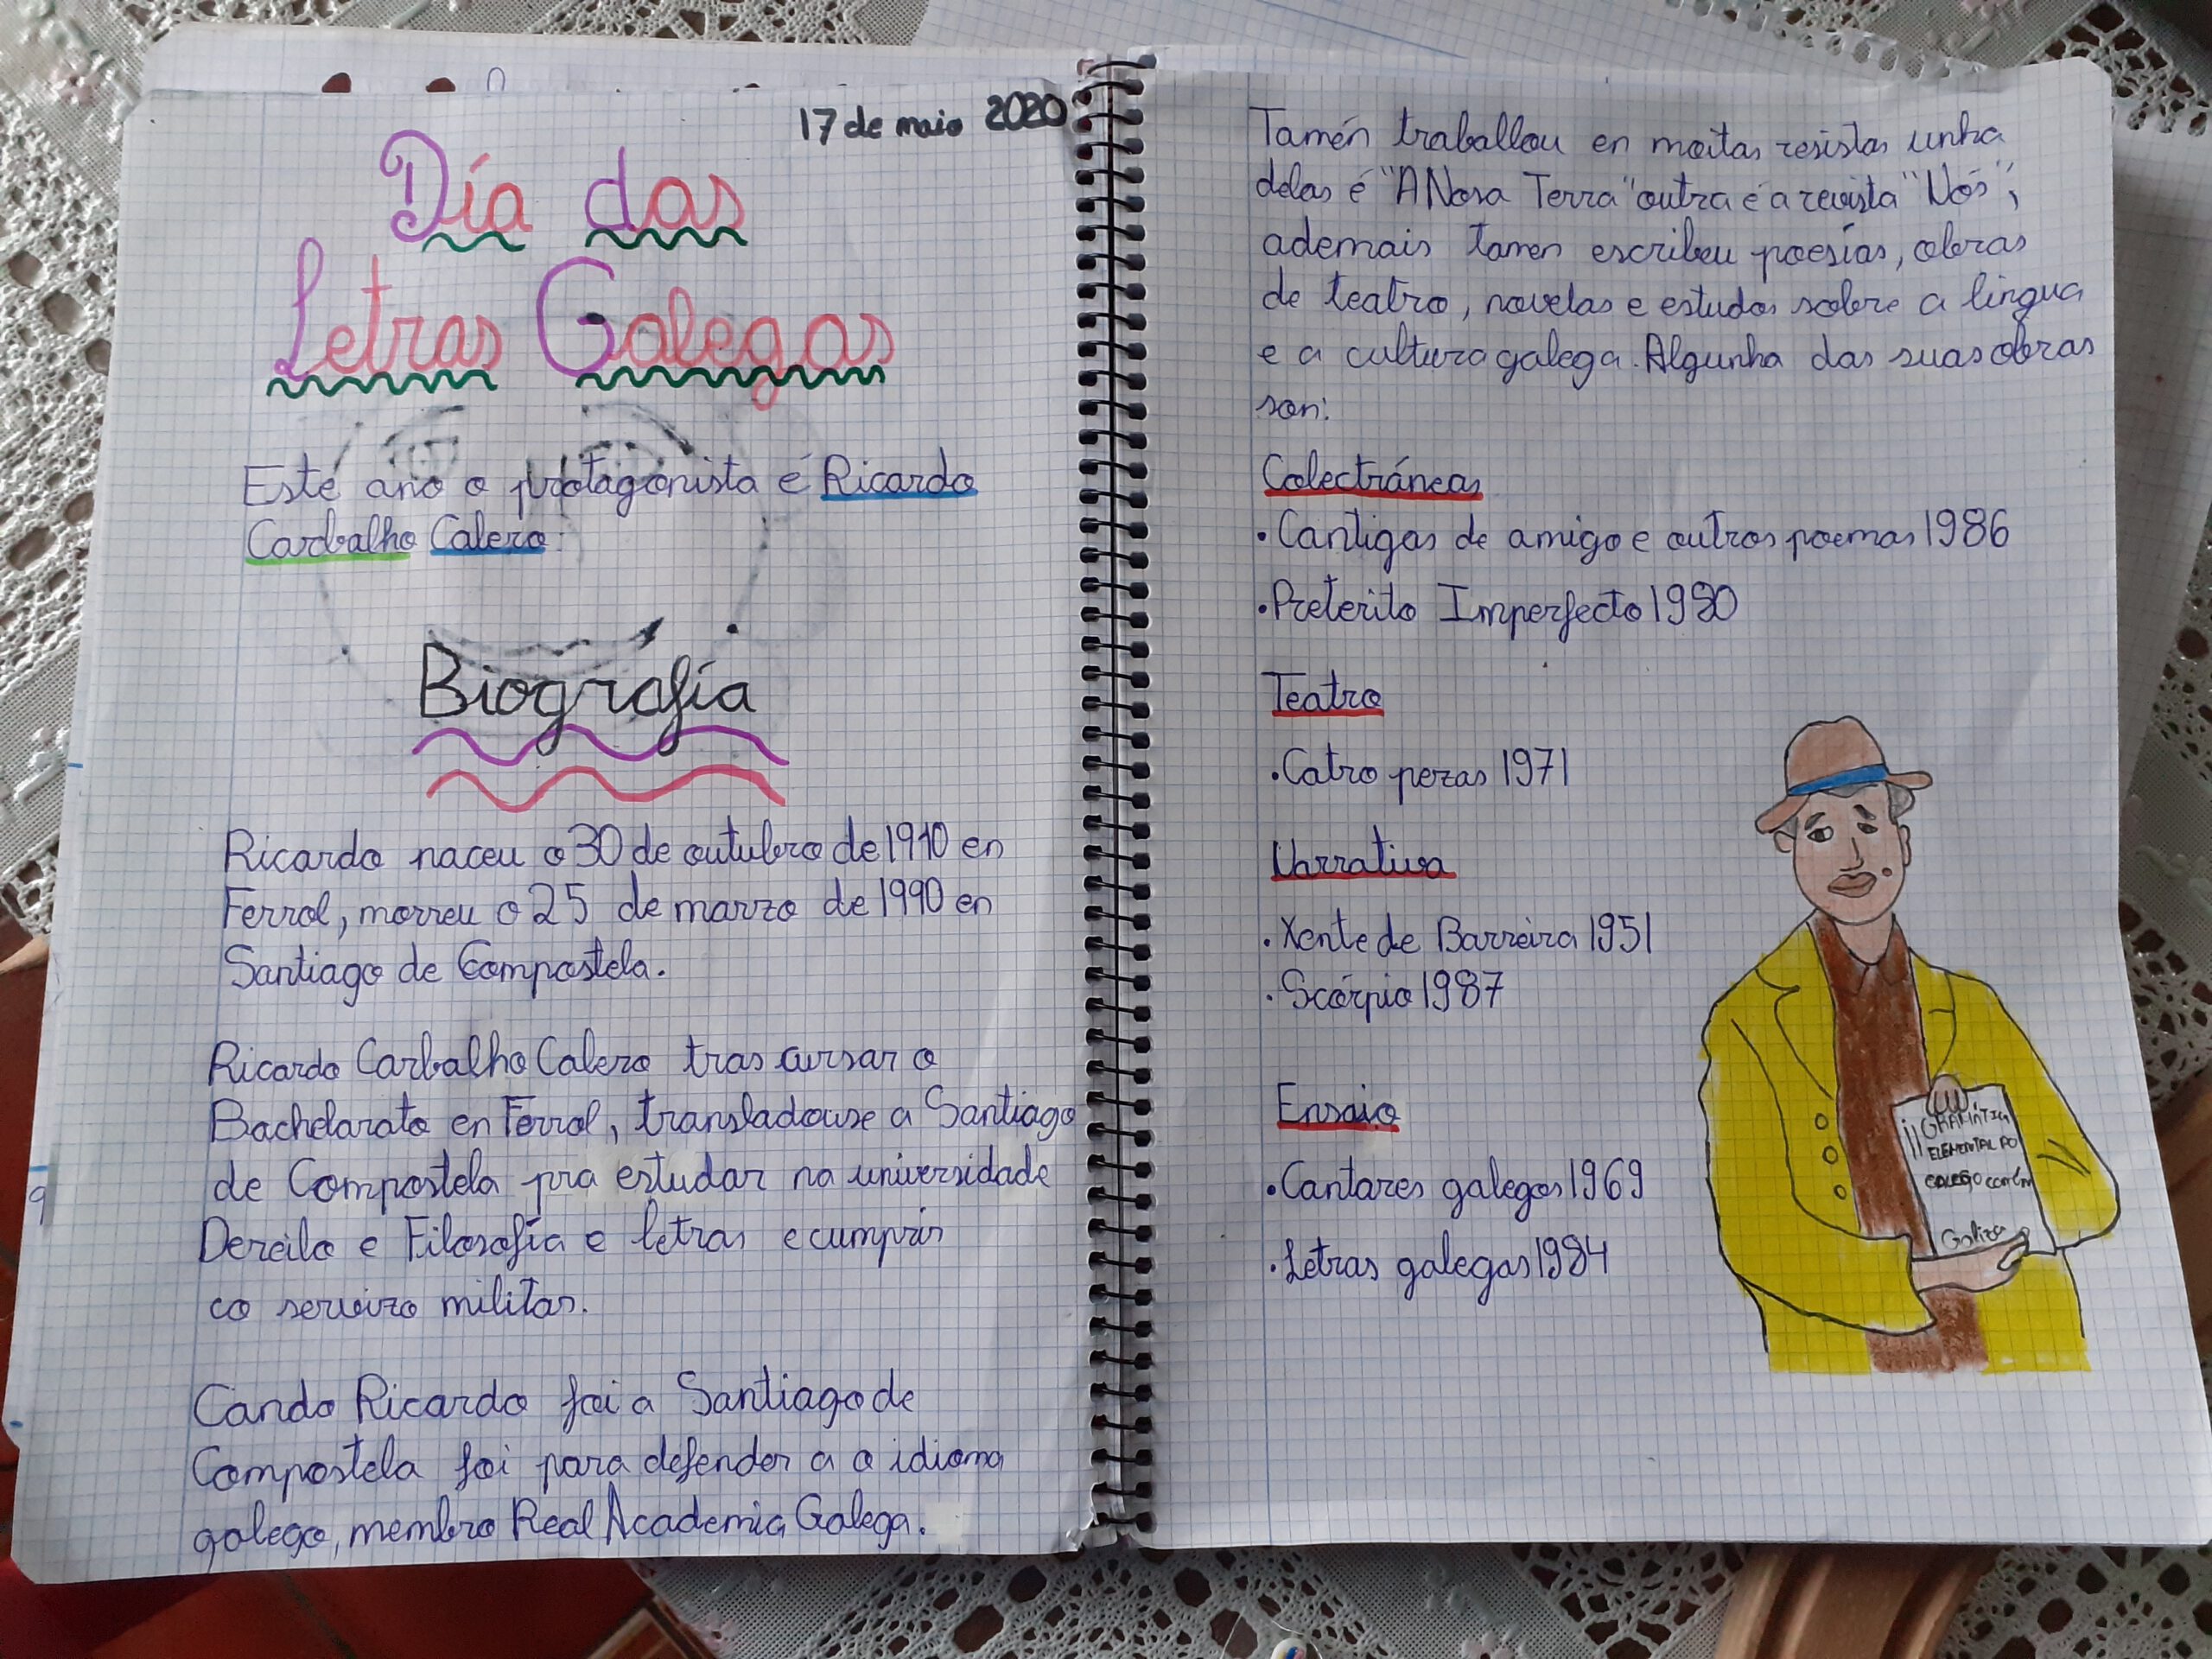 17 de maio 2020
Día das
Letras Galegas
Este ano o protagonista é Ricardo
Carbalho Calero.
Biografía
Ricardo naceu o 30 de outubro de 1910 en
Ferrol, morreu o 25 de marzo de 1990 en
Santiago de Compostela.
Ricardo Carbalho Calero tras cursar o
Bachelarato en Ferrol, transladouse a Santiago
de Compostela pra estudar na universidade
Dereito e Filosofía e letras e cumprir
co servizo militar.
Cando Ricardo foi a Santiago de
Compostela foi para defender a o idioma
galego, membro Real Academia Galega.
Tamén traballou en moitas resistas unha
delas é "A Nosa Terra" outra é a revista "Nós",
ademais tamen escribeu poesías, obras
de teatro, novelas e estudos sobre a lingua
e a cultura galega. Algunha das suas obras
son:
Colectráneas
• Cantigas de amigo e outros poemas 1986
• Preterito Imperfecto 1980
Teatro
• Catro pezas 1971
Narrativa
• Xente de Barreira 1951
• Scórpio 1987
Ensaio
• Cantares galegos 1969
• Letras galegas 1984
GRAMÁTICA
ELEMENTAL DO
GALEGO común
Galiza
9